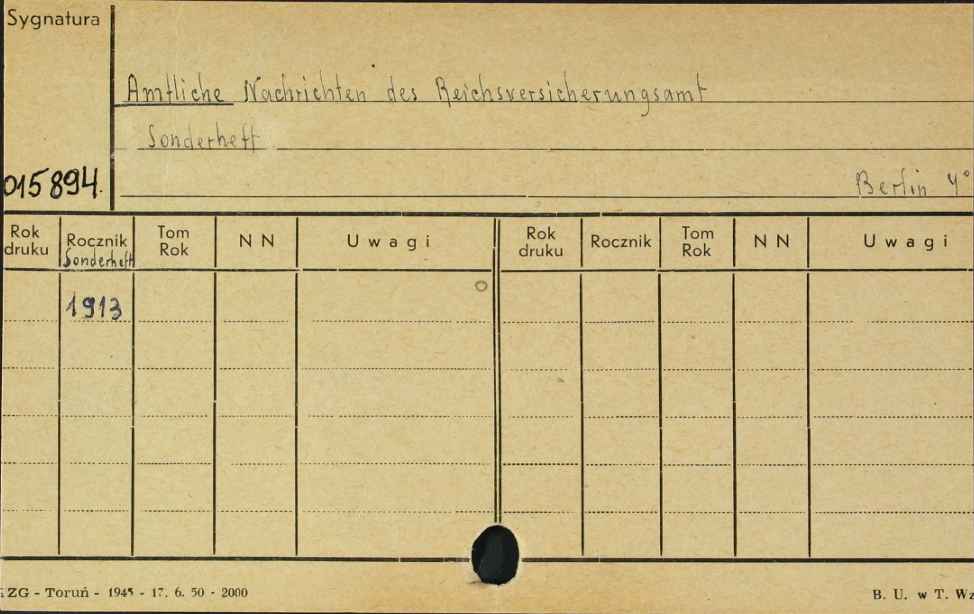 Sygnatura
Amtliche Nachrichten des Reichsversicherungsamt
Sonderheft
015894.
Berlin 4°
Rok druku Rocznik Sonderheft Tom Rok N N Uwagi Rok druku Rocznik Tom Rok N N Uwagi
1913
ZG - Toruń - 1945 - 17. 6. 50 - 2000
B. U. w T. Wz